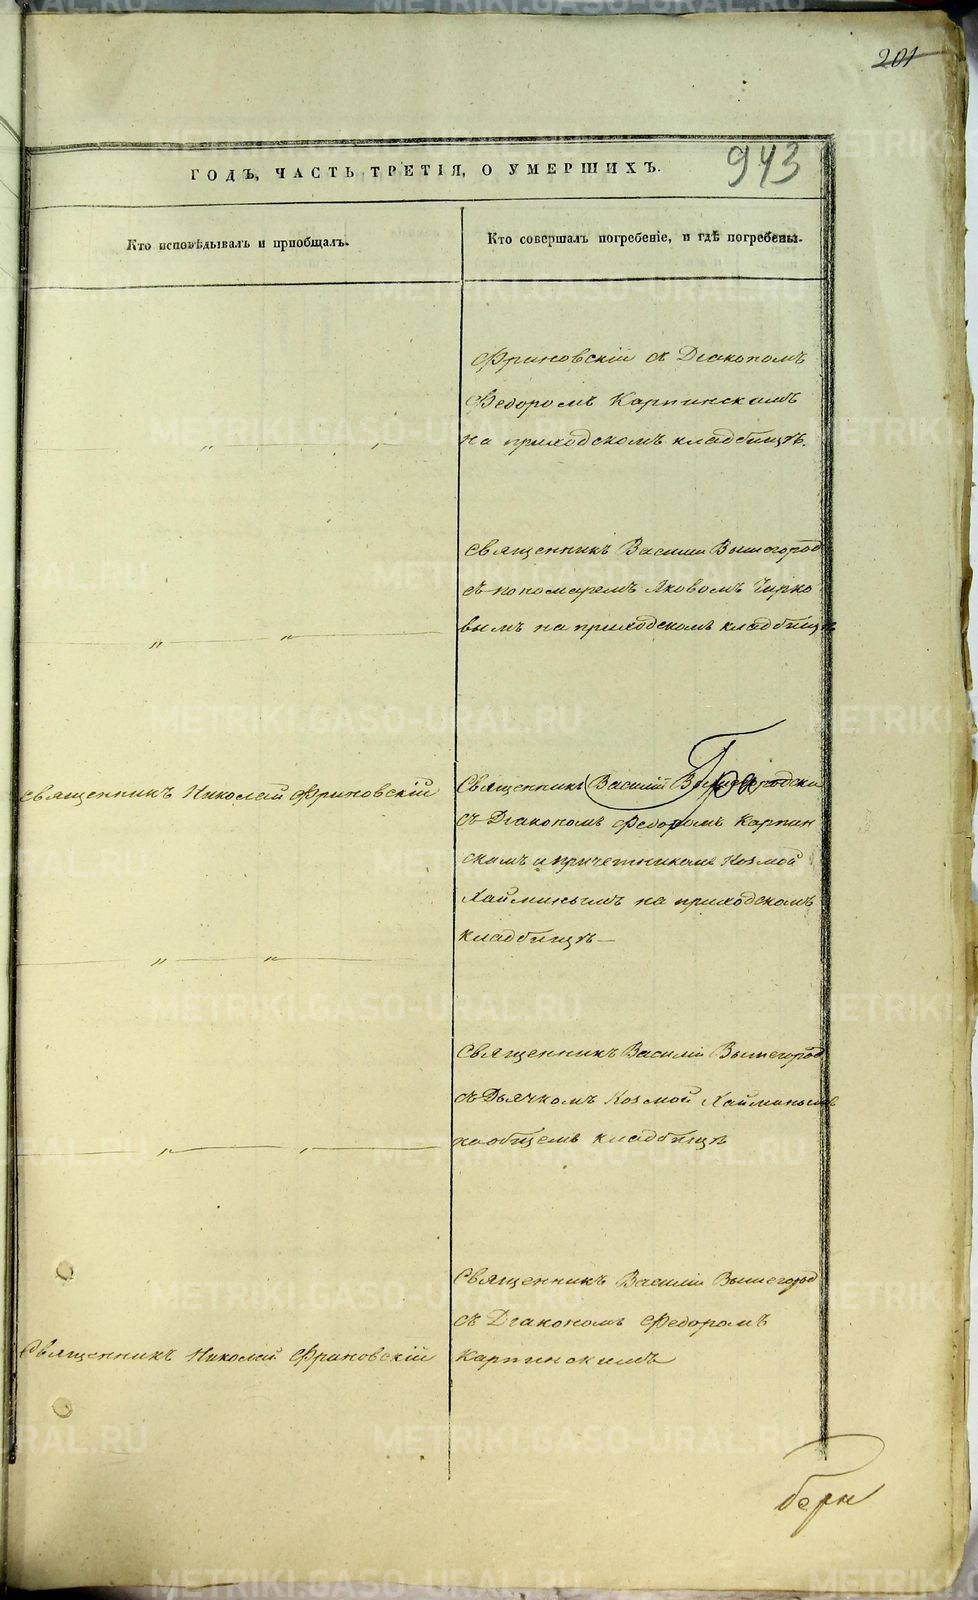 201
943
ГОДЪ, ЧАСТЬ ТРЕТІЯ, О УМЕРШИХЪ.
Кто исповѣдывалъ и пріобщалъ.
Кто совершалъ погребеніе, и гдѣ погребены.
Фриновскій съ Діакономъ
Федоромъ Карпинскимъ
на приходскомъ кладбищѣ.
„ „
Священникъ Василій Вышегород
съ пономаремъ Яковомъ Чирко
вымъ на приходскомъ кладбищѣ
„ „
Священникъ Николай Фриновскій
Священникъ Василій Вышегородскій
съ Діакономъ Федоромъ Карпин
скимъ и причетникомъ Козмой
Хайминымъ на приходскомъ
кладбищѣ
„ „
Священникъ Василій Вышегород
съ Дьячкомъ Козмой Хайминымъ
на общемъ кладбищѣ
„ „
Священникъ Василій Вышегород
съ Діакономъ Федоромъ
Священникъ Николай Фриновскій
Карпинскимъ
METRIKI.GASO-URAL.RU